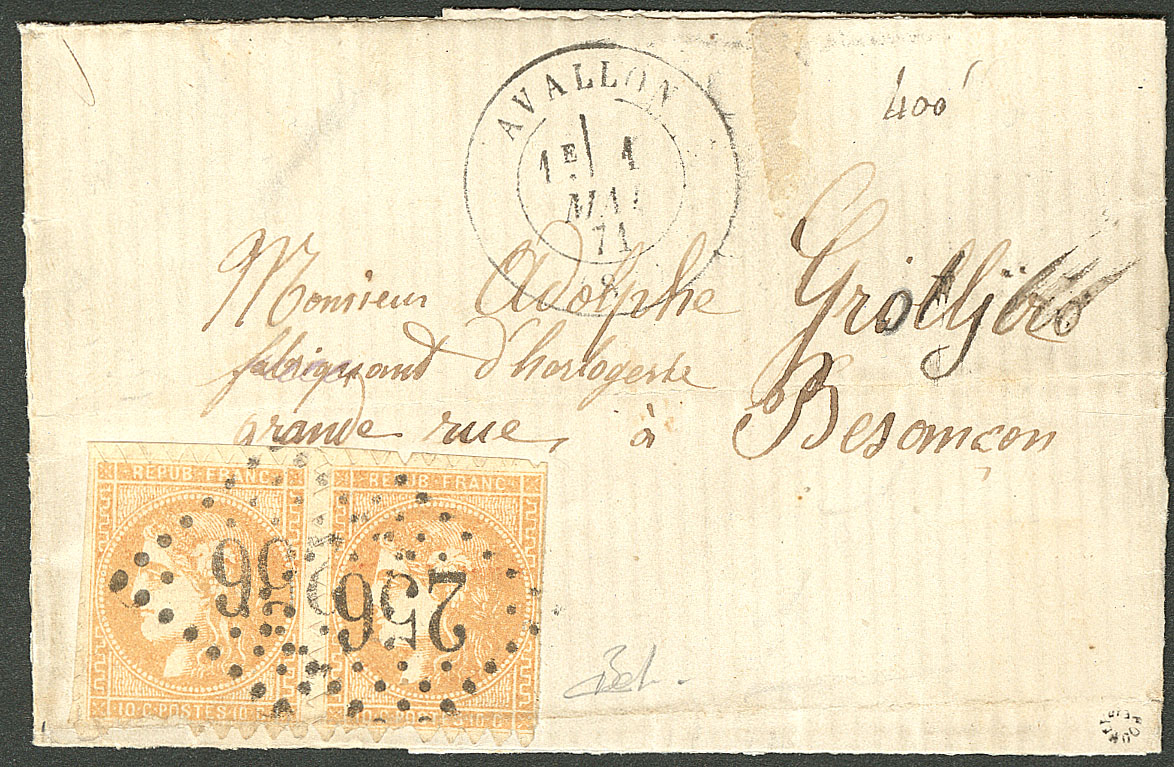 AVALLON
1E 1
MAI
71
8
400
Monsieur Adolphe
fabriquant d'horlogerie
grande rue, à Besançon
REPUB·FRANC·
REPUB·FRANC·
256
10·C·POSTES·10·C
POSTES·10·C